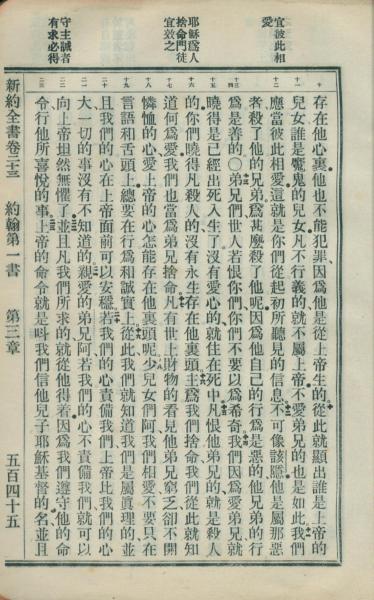 宜彼此相
愛
耶穌爲人
捨命門徒
宜效之
守主誡者
有求必得
存在他心裏他也不能犯罪因爲他是從上帝生的從此就顯出誰是上帝的
兒女誰是魔鬼的兒女凡不行義的就不屬上帝不愛弟兄的也是如此我們
應當彼此相愛這就是你們從起初所聽見的信息不可像該隱他是屬那惡
者殺了他的兄弟爲甚麼殺了他呢因爲他自己的行爲是惡的他兄弟的行
爲是善的〇弟兄們世人若恨你們你們不要以爲希奇我們因爲愛弟兄就
曉得是已經出死入生了沒有愛心的就住在死中凡恨他弟兄的就是殺人
的你們曉得凡殺人的沒有永生存在他裏頭主爲我們捨命我們從此就知
道何爲愛我們也當爲弟兄捨命凡有世上財物的看見他弟兄窮乏卻不開
憐恤的心愛上帝的心怎能存在他裏頭呢少兒女們阿我們相愛不要只在
言語和舌頭上總要在行爲和誠實上從此我們就知道我們是屬眞理的並
且我們的心在上帝面前可以安穩若我們的心責備我們上帝比我們的心
大一切的事沒有不知道的親愛的弟兄阿若我們的心不責備我們就可以
向上帝坦然無懼了並且凡我們所求的就從他得着因爲我們遵守他的命
令行他所喜悅的事上帝的命令就是叫我們信他兒子耶穌基督的名並且
新約全書卷二十三 約翰第一書 第三章 五百四十五